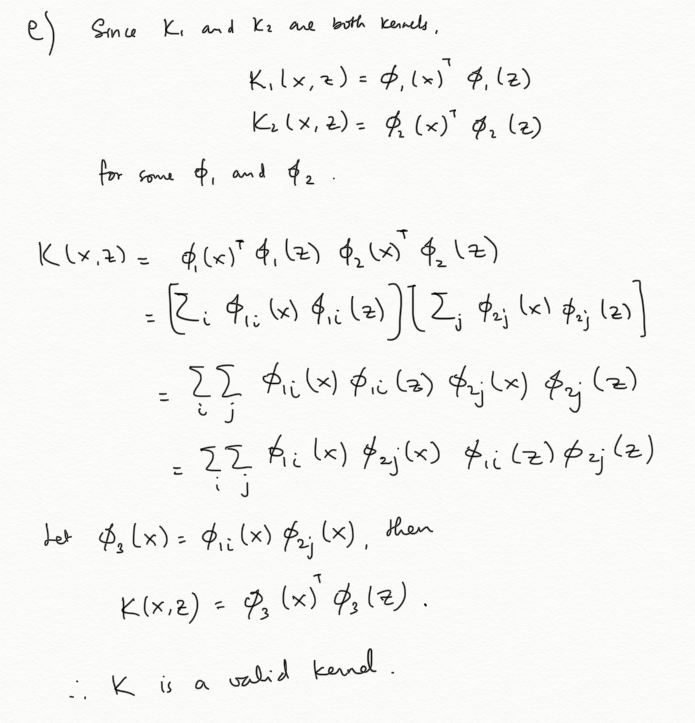 e) Since K₁ and K₂ are both kernels,
K₁(x,z) = ϕ₁(x)ᵀ ϕ₁(z)
K₂(x,z) = ϕ₂(x)ᵀ ϕ₂(z)
for some ϕ₁ and ϕ₂.
K(x,z) = ϕ₁(x)ᵀ ϕ₁(z) ϕ₂(x)ᵀ ϕ₂(z)
= [Σᵢ ϕ₁ᵢ(x) ϕ₁ᵢ(z)][Σⱼ ϕ₂ⱼ(x) ϕ₂ⱼ(z)]
= Σᵢ Σⱼ ϕ₁ᵢ(x) ϕ₁ᵢ(z) ϕ₂ⱼ(x) ϕ₂ⱼ(z)
= Σᵢ Σⱼ ϕ₁ᵢ(x) ϕ₂ⱼ(x) ϕ₁ᵢ(z) ϕ₂ⱼ(z)
Let ϕ₃(x) = ϕ₁ᵢ(x) ϕ₂ⱼ(x), then
K(x,z) = ϕ₃(x)ᵀ ϕ₃(z).
∴ K is a valid kernel.